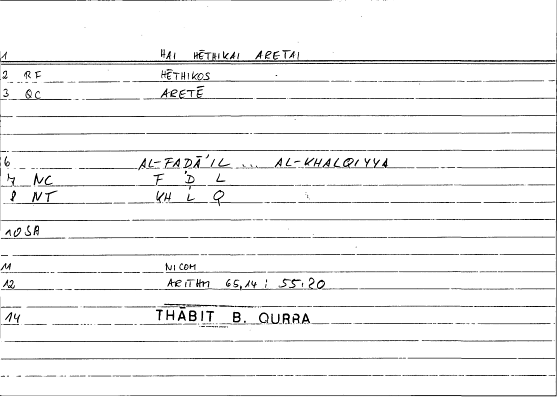 1 HAI HĒTHIKAI ARETAI
2 RF HĒTHIKOS
3 QC ARETĒ
6 AL-FAḌĀ'IL ... AL-KHALQIYYA
7 NC F Ḍ L
8 NT KH L Q
10 SA
11 NICOM
12 ARITHM 65,14 : 55,20
14 THĀBIT B. QURRA